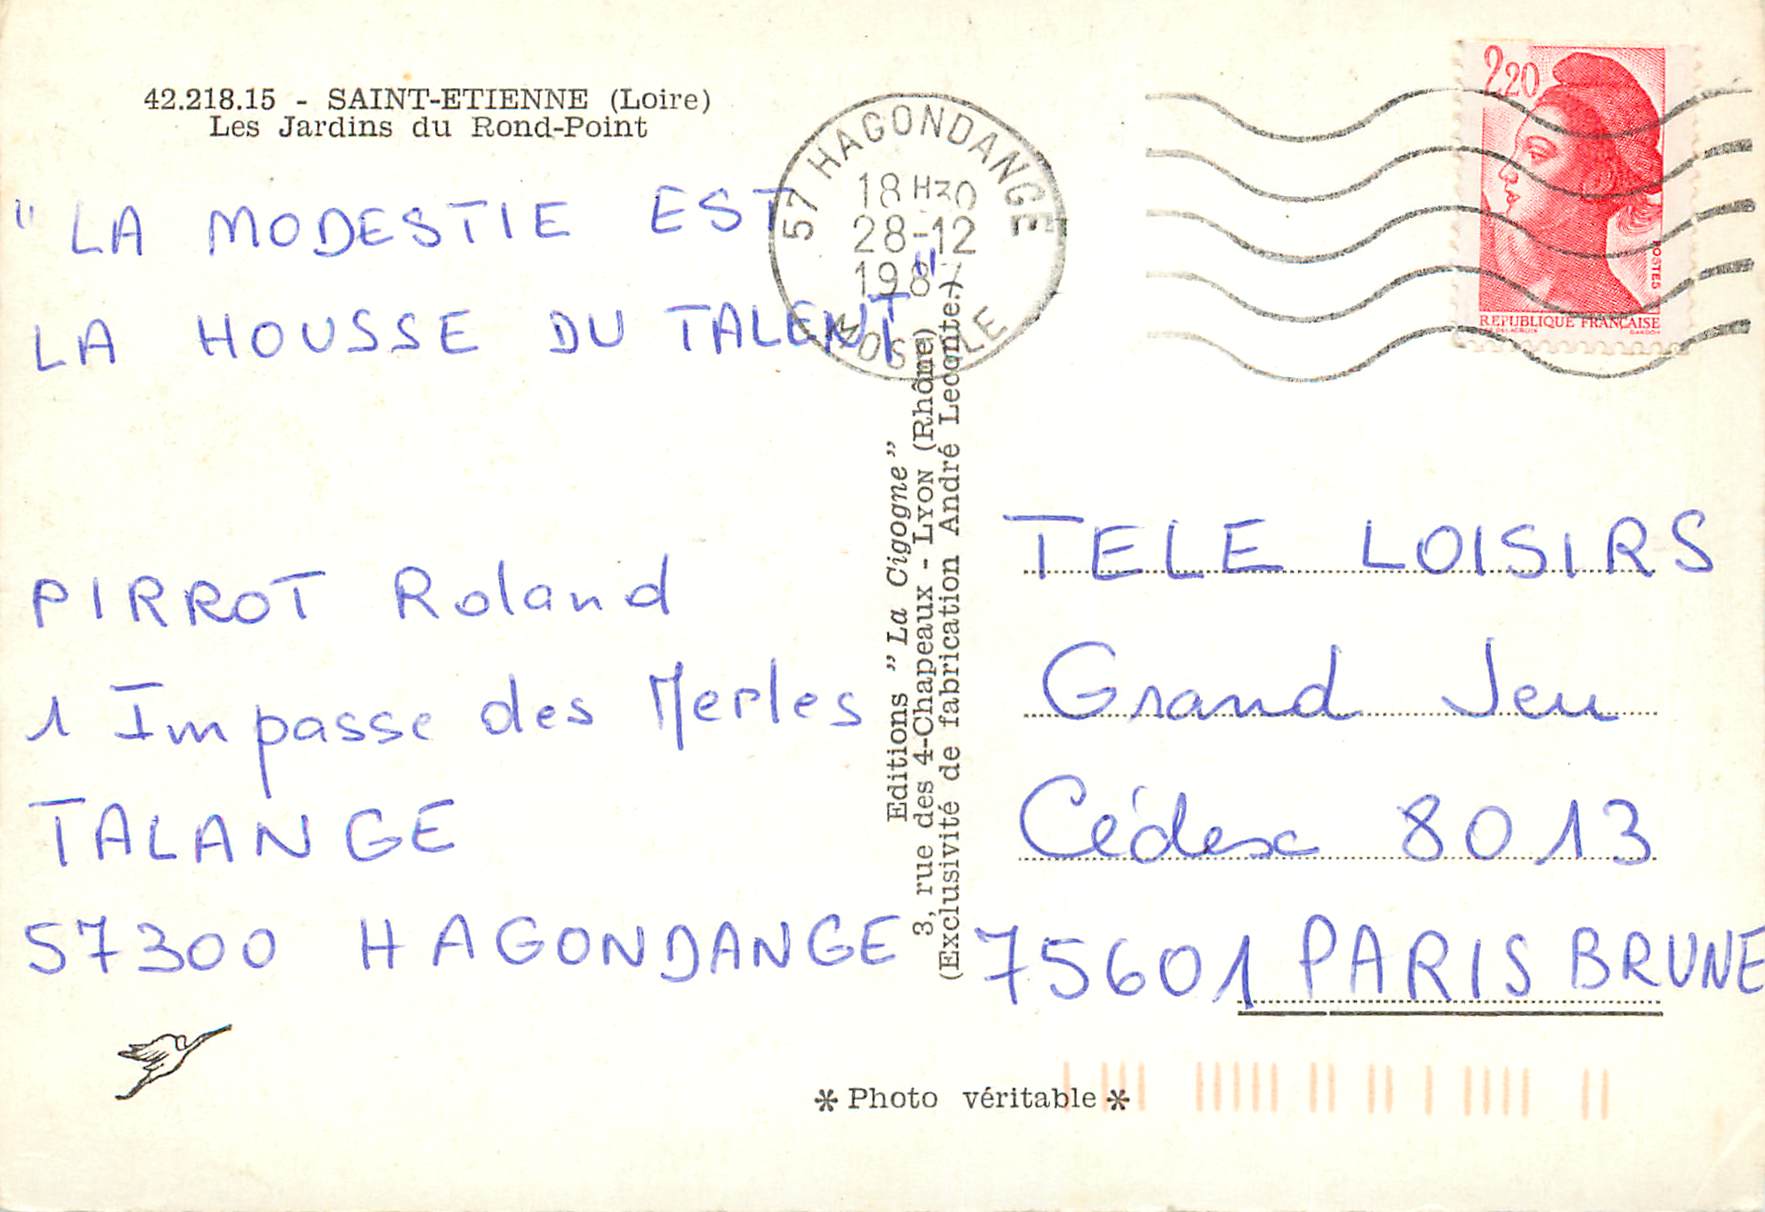 42.218.15 - SAINT-ETIENNE (Loire)
Les Jardins du Rond-Point
" LA MODESTIE EST
LA HOUSSE DU TALENT "
PIRROT Roland
1 Impasse des Merles
TALANGE
57300 HAGONDANGE
57 HAGONDANGE
18 H30
28-12
198
MOSELLE
2,20
POSTES
REPUBLIQUE FRANÇAISE
Editions " La Cigogne "
3, rue des 4-Chapeaux - LYON (Rhône)
(Exclusivité de fabrication André Leconte.)
TELE LOISIRS
Grand Jeu
Cédex 8013
75601 PARIS BRUNE
* Photo véritable *